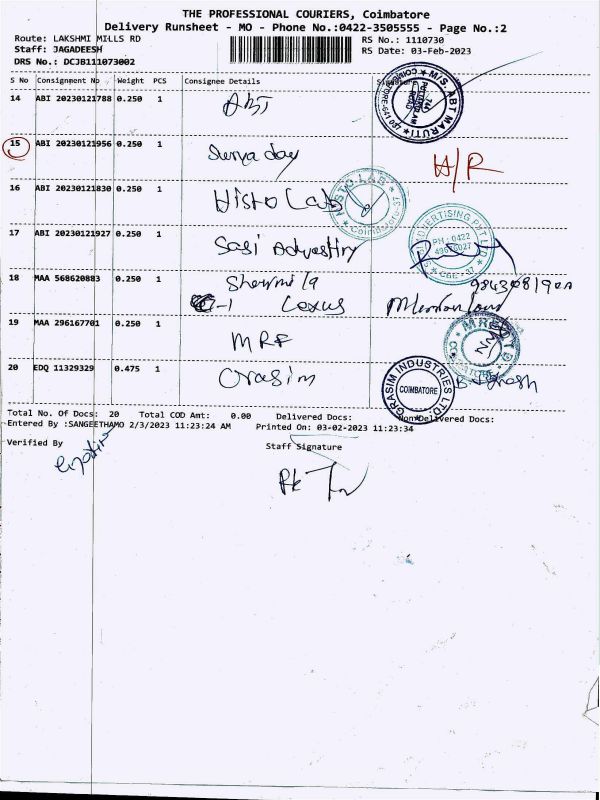 THE PROFESSIONAL COURIERS, Coimbatore
Delivery Runsheet - MO - Phone No.:0422-3505555 - Page No.:2
Route: LAKSHMI MILLS RD RS No.: 1110730
Staff: JAGADEESH RS Date: 03-Feb-2023
DRS No.: DCJB111073002
S No Consignment No Weight PCS Consignee Details Signature
14 ABI 20230121788 0.250 1 ABT
M/S. ABT MARUTI
15 ABI 20230121956 0.250 1 Surya day H/R
16 ABI 20230121830 0.250 1 Histo Lab
HISTO LAB
17 ABI 20230121927 0.250 1 Sasi Advestiry
ADVERTISING PVT LTD
PH - 0422
CBE - 37
18 MAA 568620883 0.250 1 Sharmila
-1 Lexus
19 MAA 296167701 0.250 1 MRF
20 EDQ 11329329 0.475 1 Grasim
GRASIM INDUSTRIES LTD.
COIMBATORE
Total No. Of Docs: 20 Total COD Amt: 0.00 Delivered Docs: Non Delivered Docs:
Entered By :SANGEETHAMO 2/3/2023 11:23:24 AM Printed On: 03-02-2023 11:23:34
Verified By Staff Signature